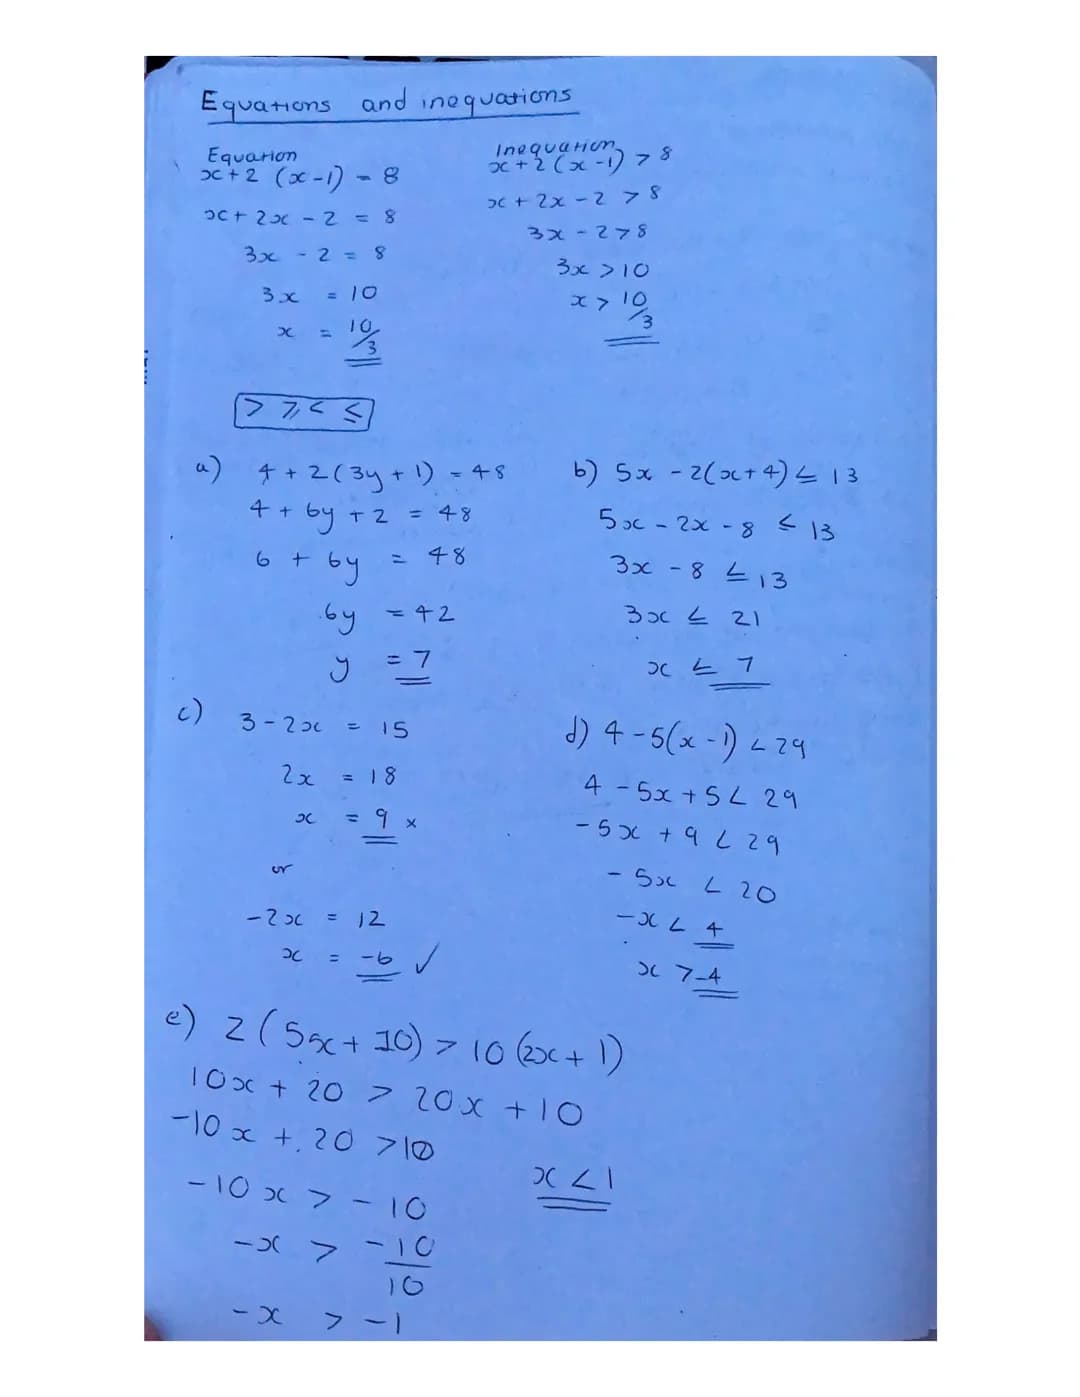 Equations and inequations
Equation
x + 2 (x - 1) = 8
x + 2x - 2 = 8
3x - 2 = 8
3x = 10
x = 10/3
Inequation
x + 2 (x - 1) > 8
x + 2x - 2 > 8
3x - 2 > 8
3x > 10
x > 10/3
> ≥ < ≤
a) 4 + 2(3y + 1) = 48
4 + 6y + 2 = 48
6 + 6y = 48
6y = 42
y = 7
b) 5x - 2(x + 4) ≤ 13
5x - 2x - 8 ≤ 13
3x - 8 ≤ 13
3x ≤ 21
x ≤ 7
c) 3 - 2x = 15
2x = 18
x = 9 ×
or
-2x = 12
x = -6 ✓
d) 4 - 5(x - 1) < 29
4 - 5x + 5 < 29
-5x + 9 < 29
-5x < 20
-x < 4
x > -4
e) 2(5x + 10) > 10(2x + 1)
10x + 20 > 20x + 10
-10x + 20 > 10
-10x > -10
-x > -10/10
-x > -1
x < 1